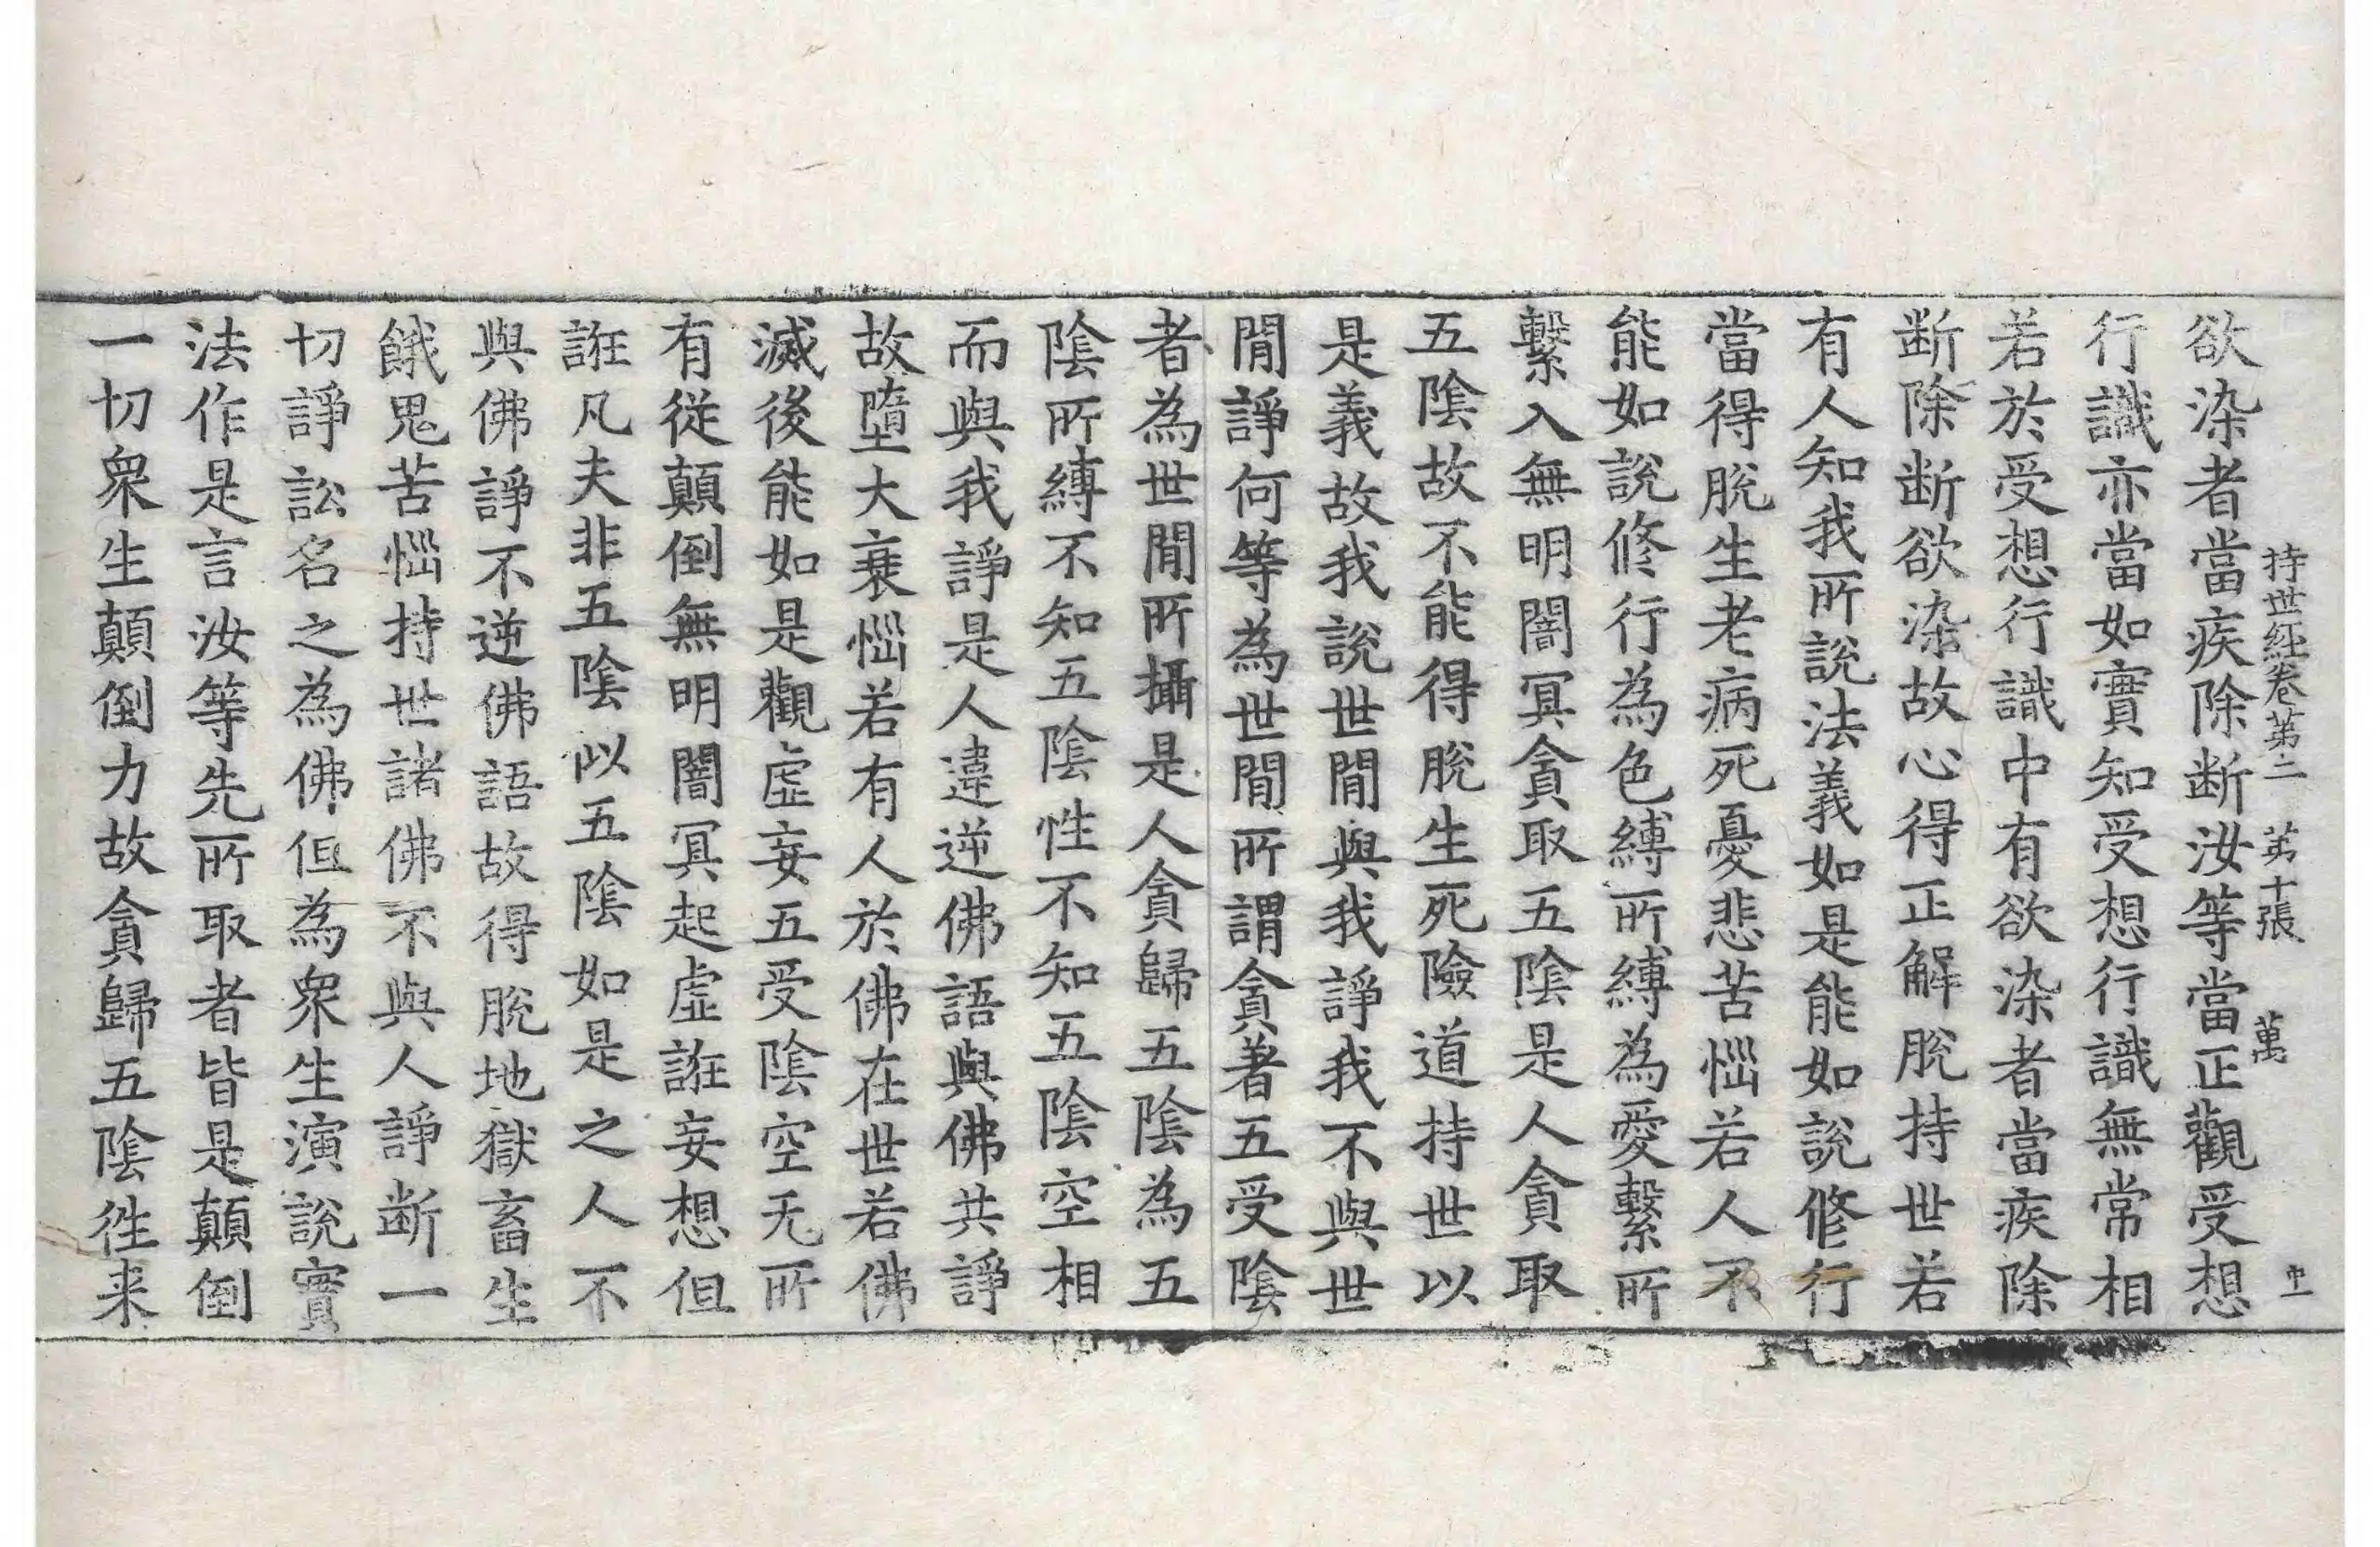 持世経卷第二 苐十張 萬
欲染者當疾除断汝等當正觀受想
行識亦當如實知受想行識無常相
若於受想行識中有欲染者當疾除
断除断欲染故心得正解脫持世若
有人知我所說法義如是能如說修行
當得脫生老病死憂悲苦惱若人不
能如說修行為色縛所縛為愛繫所
繫入無明闇冥貪取五陰是人貪取
五陰故不能得脫生死險道持世以
是義故我說世閒與我諍我不與世
閒諍何等為世閒所謂貪著五受陰
者為世閒所攝是人貪歸五陰為五
陰所縛不知五陰性不知五陰空相
而與我諍是人違逆佛語與佛共諍
故墮大衰惱若有人於佛在世若佛
滅後能如是觀虛妄五受陰空无所
有從顛倒無明闇冥起虛誑妄想但
誑凡夫非五陰似五陰如是之人不
與佛諍不逆佛語故得脫地獄畜生
餓鬼苦惱持世諸佛不與人諍断一
切諍訟名之為佛但為衆生演說實
法作是言汝等先所取者皆是顛倒
一切衆生顛倒力故貪歸五陰徃来